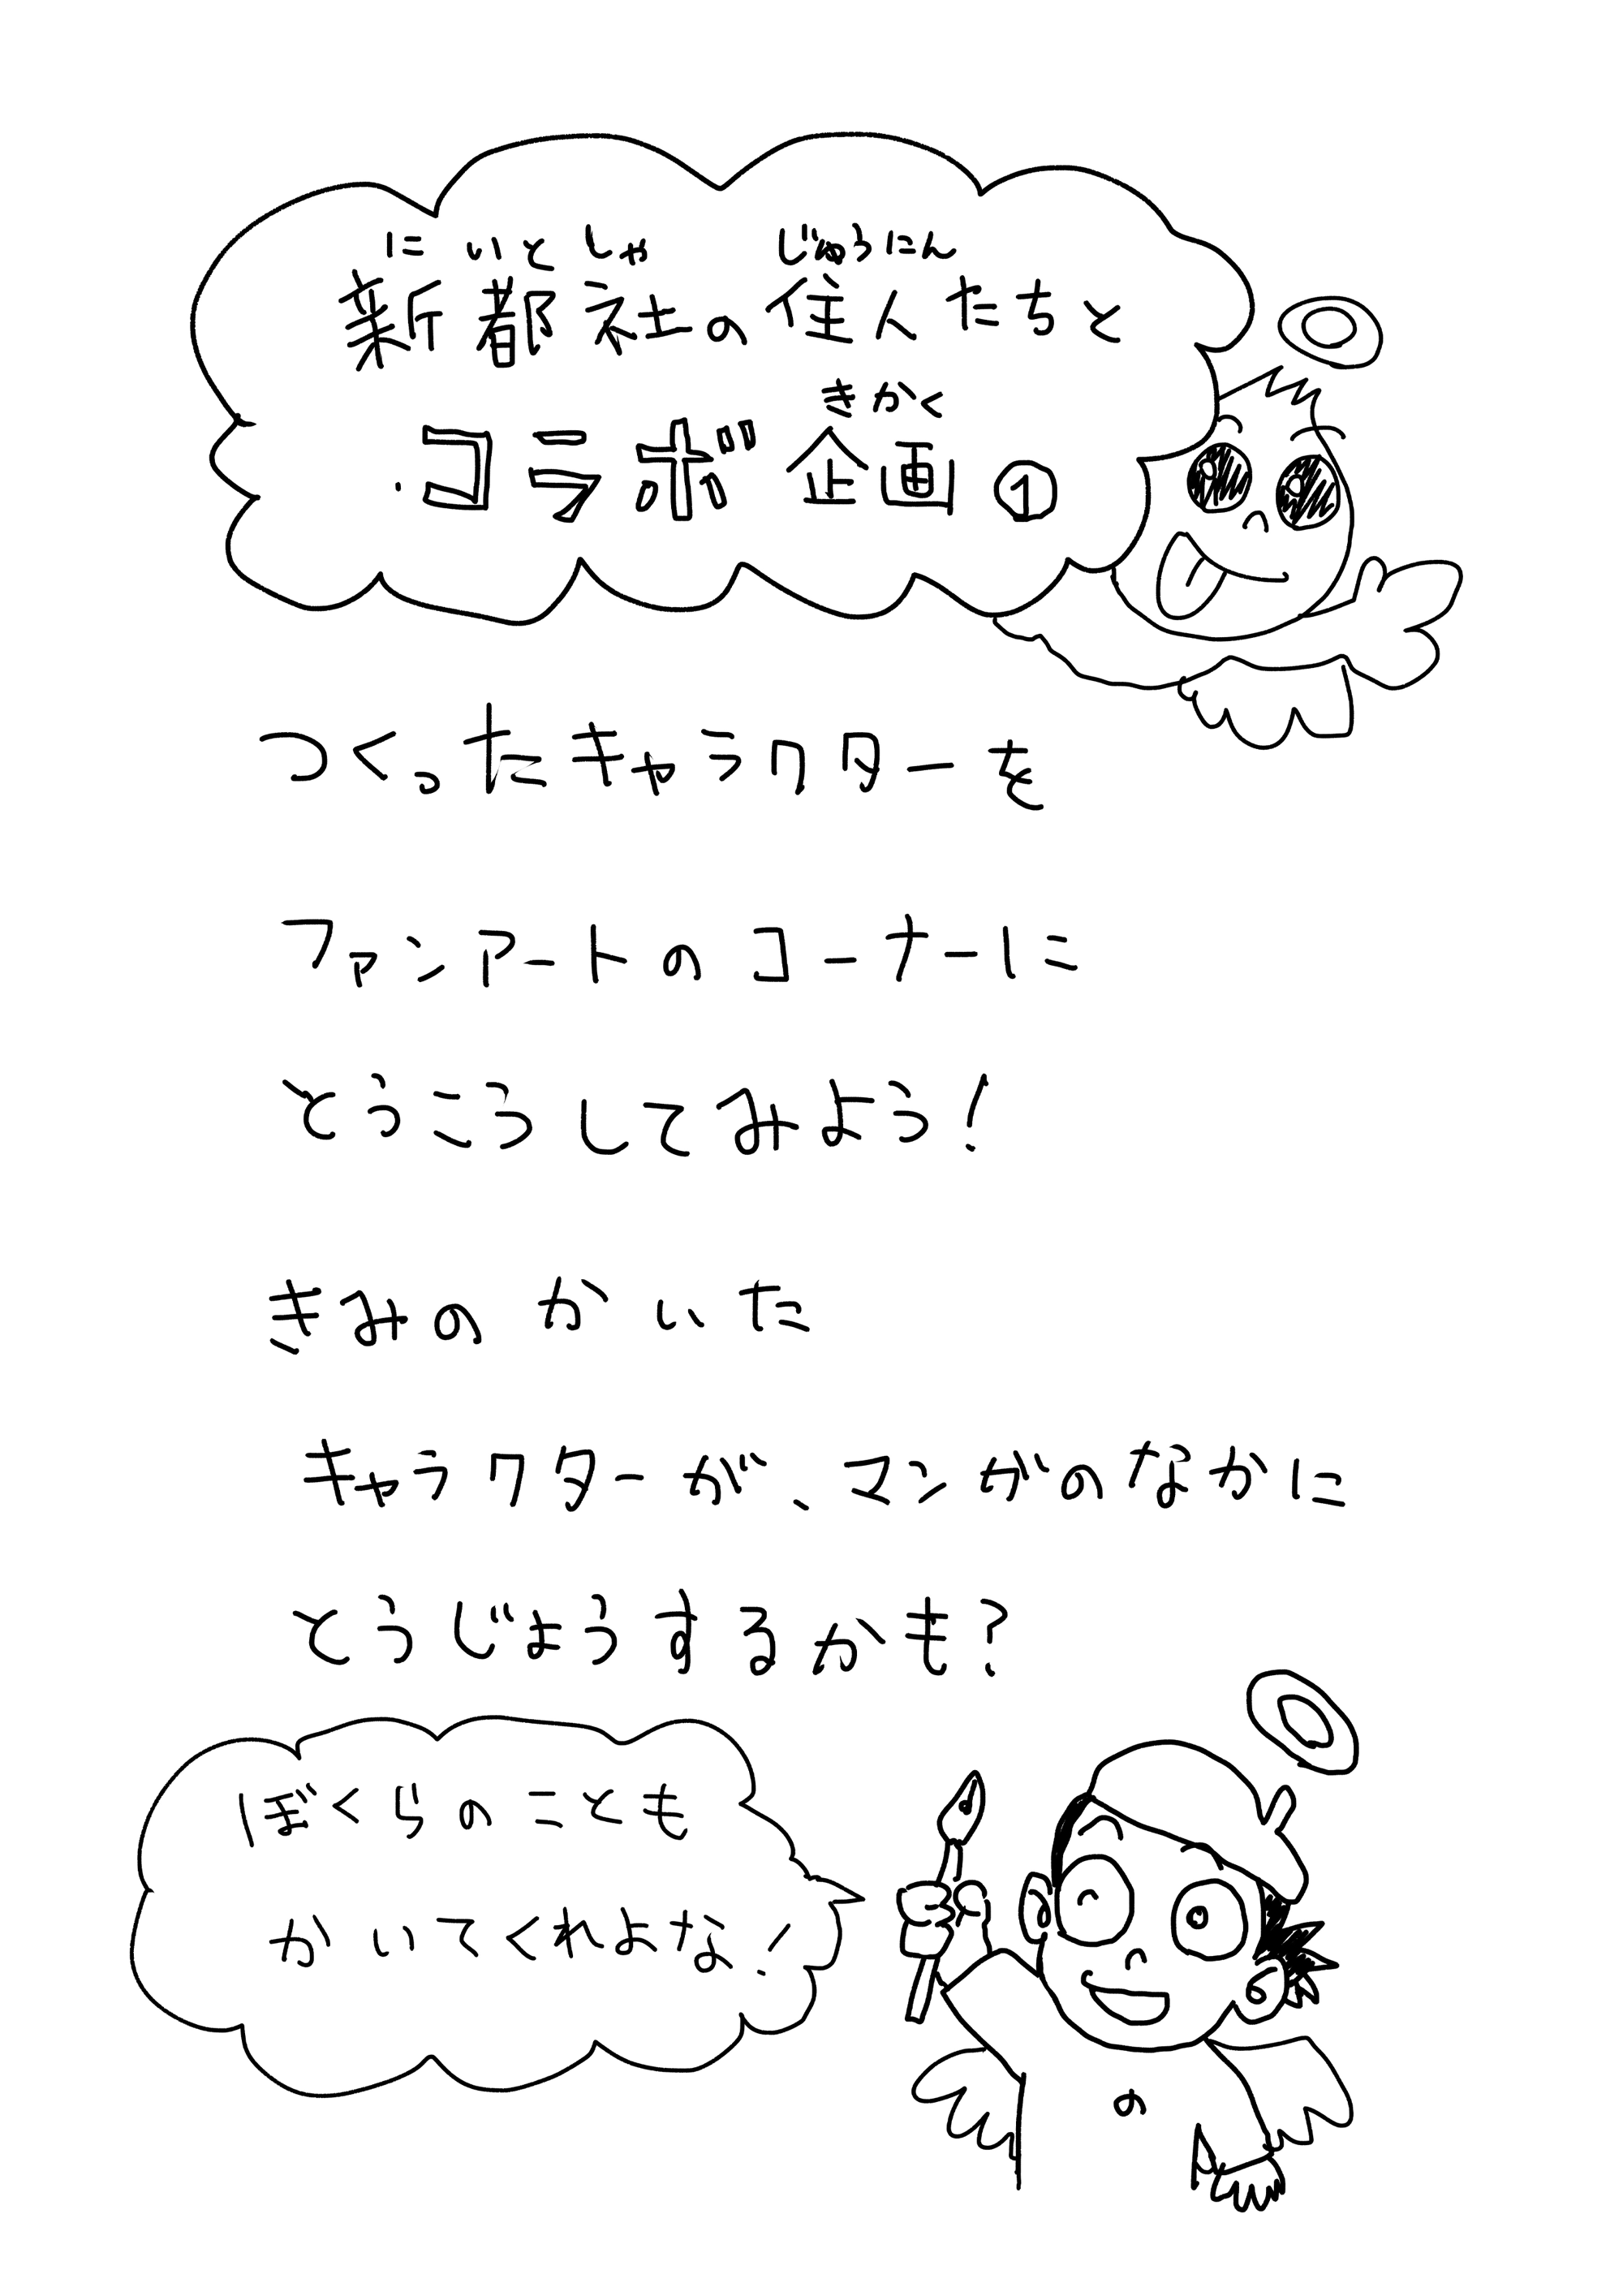 にいとしゃ じゅうにん
新都社の住人たちと
きかく
コラボ企画①
つくったキャラクターを
ファンアートのコーナーに
とうこうしてみよう!
きみのかいた
キャラクターが、マンガのなかに
とうじょうするかも?
ぼくらのことも
かいてくれよな!
の